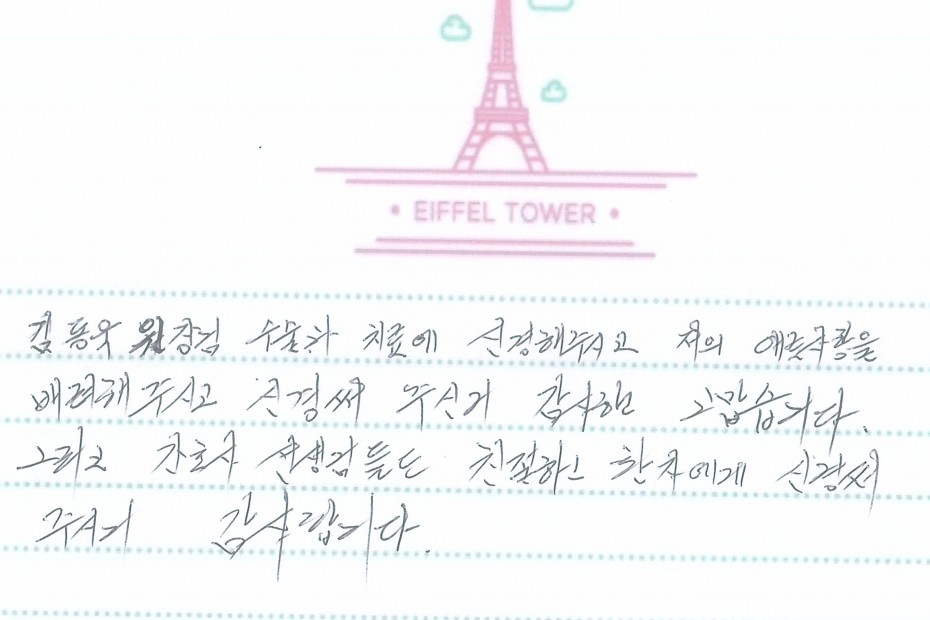 EIFFEL TOWER
김동욱 원장님 수술과 치료에 신경해주시고 저의 애로사항을
배려해주시고 신경써 주신거 감사한 고맙습니다.
그리고 간호사 선생님들도 친절하고 환자에게 신경써
주셔서 감사합니다.